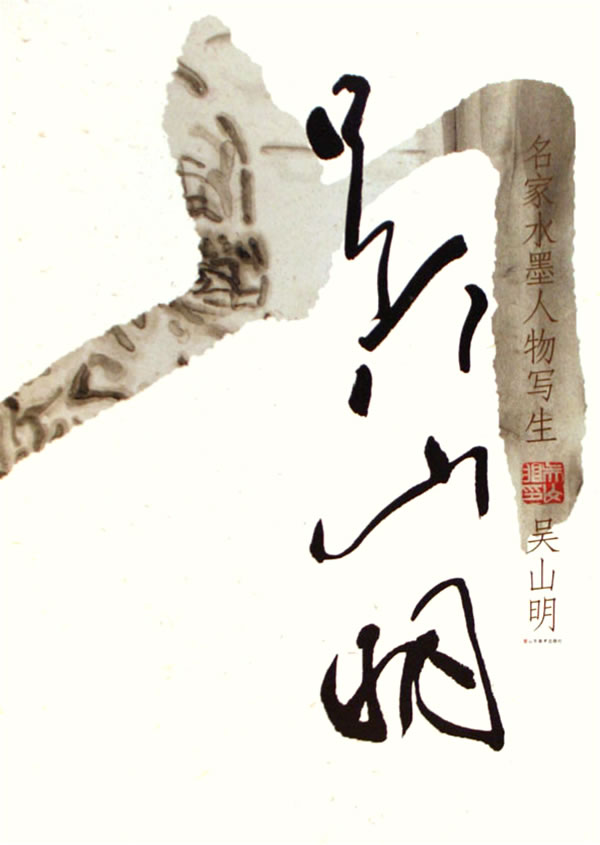 名家水墨人物写生
吴山明
吴山明